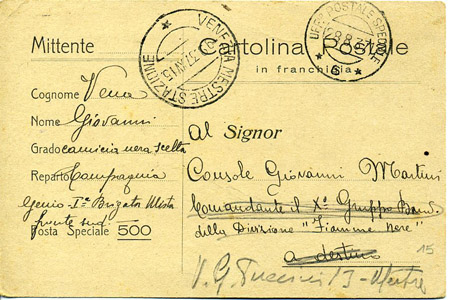 Mittente
Cartolina Postale
in franchigia
VENEZIA MESTRE STAZIONE
UFF. POSTALE SPECIALE
28.8.37
6
Cognome Vena
Nome Giovanni
Grado camicia nera scelta
Reparto Compagnia
Genio - Iª Brigata Mista
fronte sud
Posta Speciale 500
Al Signor
Console Giovanni Martini
Comandante il Xº Gruppo Band.
della Divisione "Fiamme nere"
a destino
V. G. Puccini 13 - Mestre
15